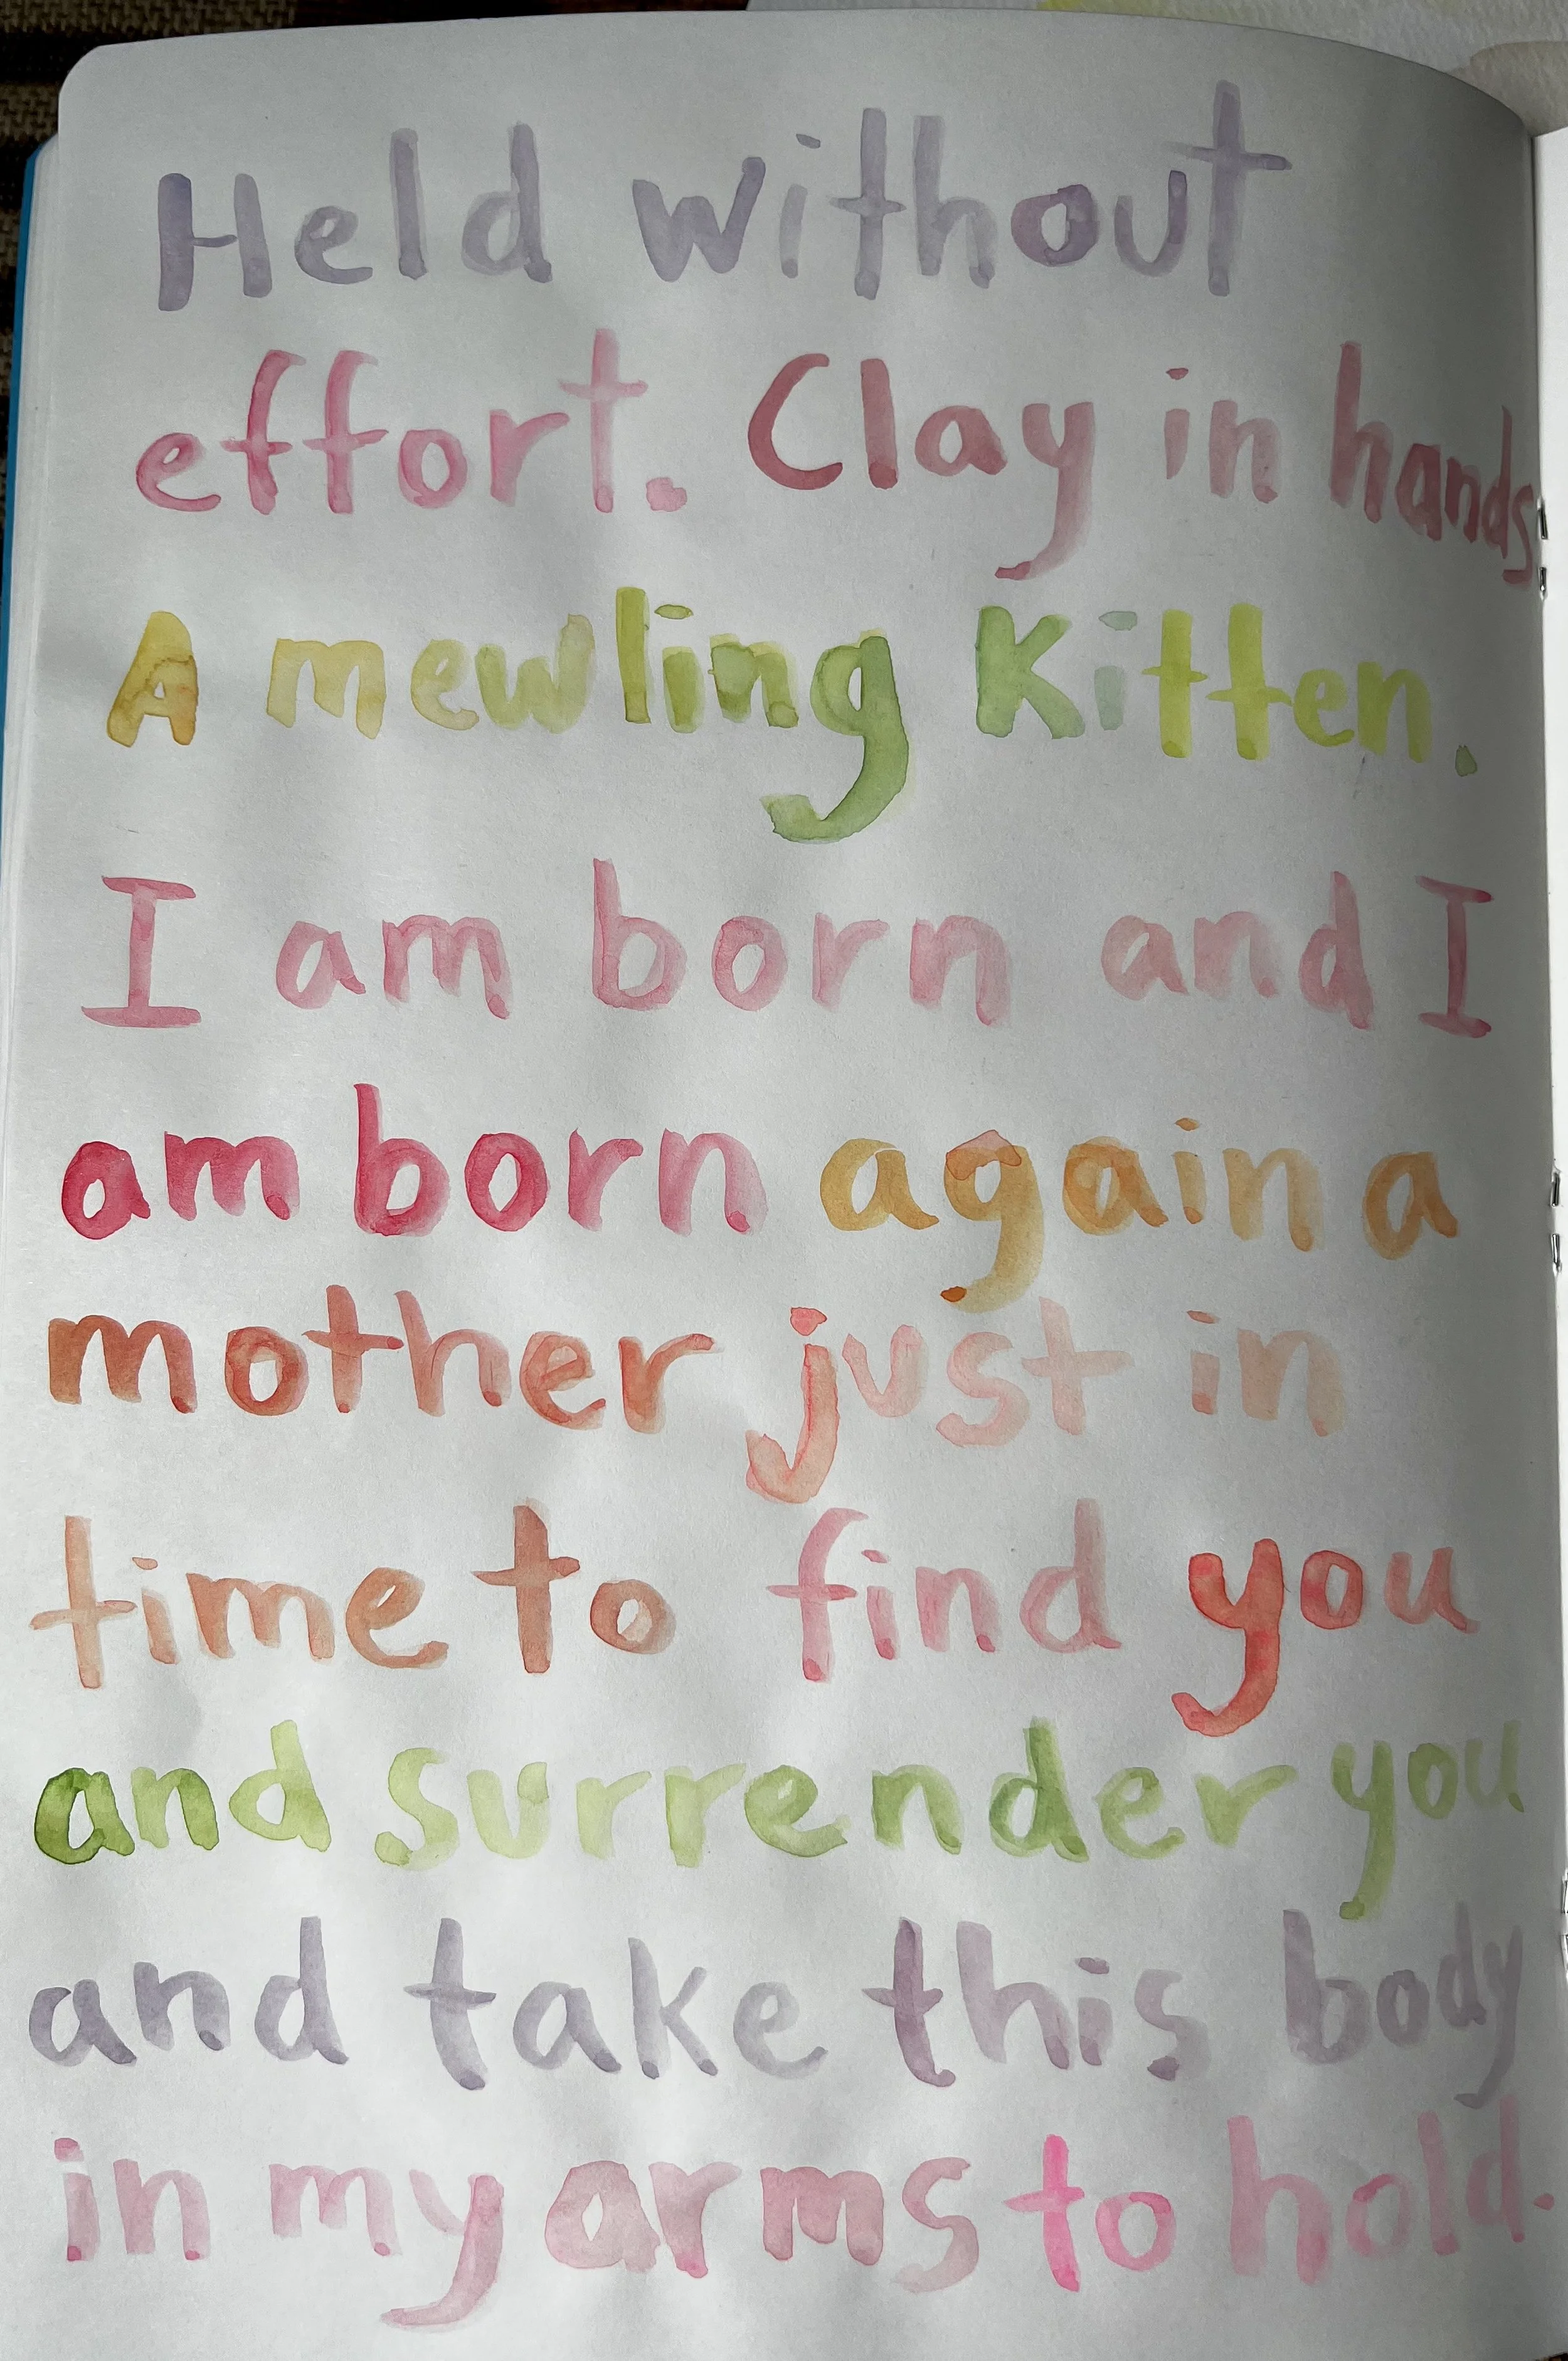 Held without
effort. Clay in hands
A mewling Kitten.
I am born and I
am born again a
mother just in
time to find you
and surrender you
and take this body
in my arms to hold.